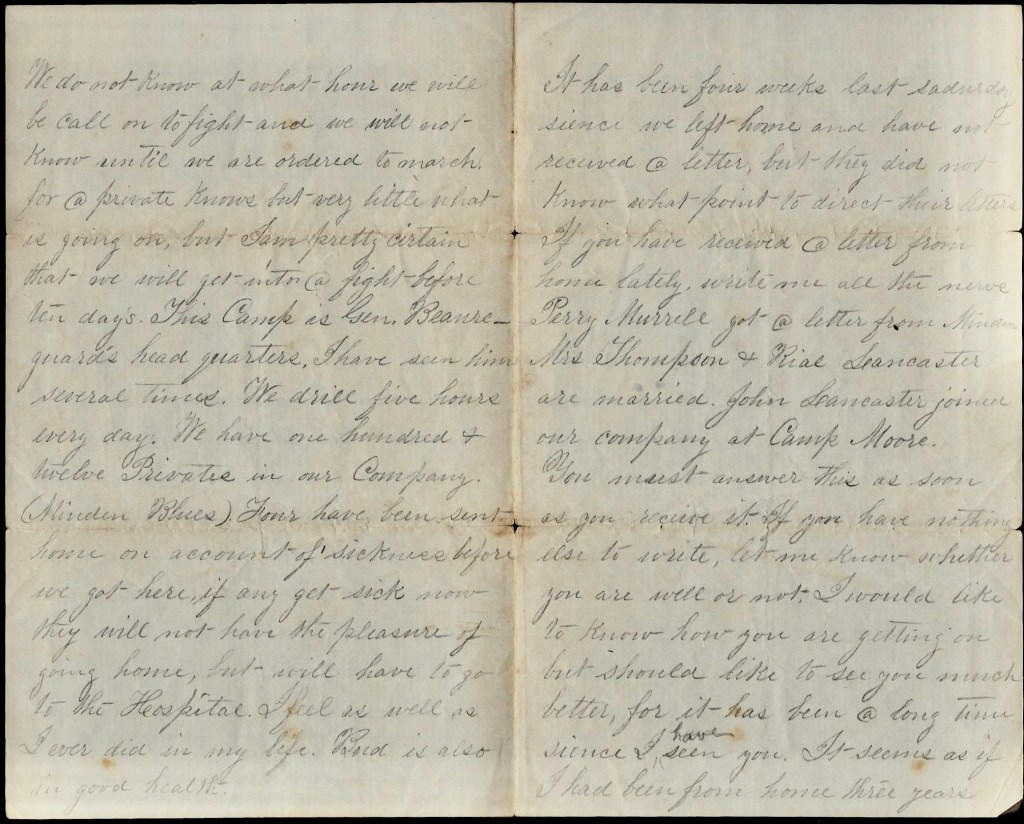 We do not know at what hour we will
be call on to fight and we will not
know until we are ordered to march.
for @ private knows but very little what
is going on, but I am pretty cirtain
that we will get into @ fight before
ten day's. This Camp is Gen. Beaure-
guard's head quarters, I have seen him
several times. We drill five hours
every day. We have one hundred &
twelve Privates in our Company.
(Minden Blues). Four have been sent
home on account of sickness before
we got here, if any get sick now
they will not have the pleasure of
going home, but will have to go
to the Hospital. I feel as well as
I ever did in my life. Bud is also
in good health.
It has been four weeks last sadurday
sience we left home and have not
received @ letter, but they did not
know what point to direct their letters
If you have received @ letter from
home lately, write me all the news
Perry Murrell got @ letter from Minden
Mrs Thompson & Rial Lancaster
are married. John Lancaster joined
our company at Camp Moore.
You must answer this as soon
as you receive it. If you have nothing
else to write, let me know whether
you are well or not. I would like
to know how you are getting on
but should like to see you much
better, for it has been @ long time
sience I have seen you. It seems as if
I had been from home three years